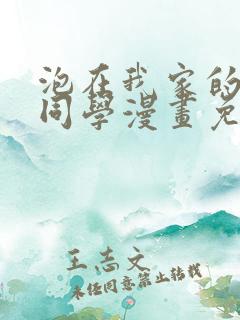 泡在我家的
同學漫畫免
王志文
未经同意禁止转载